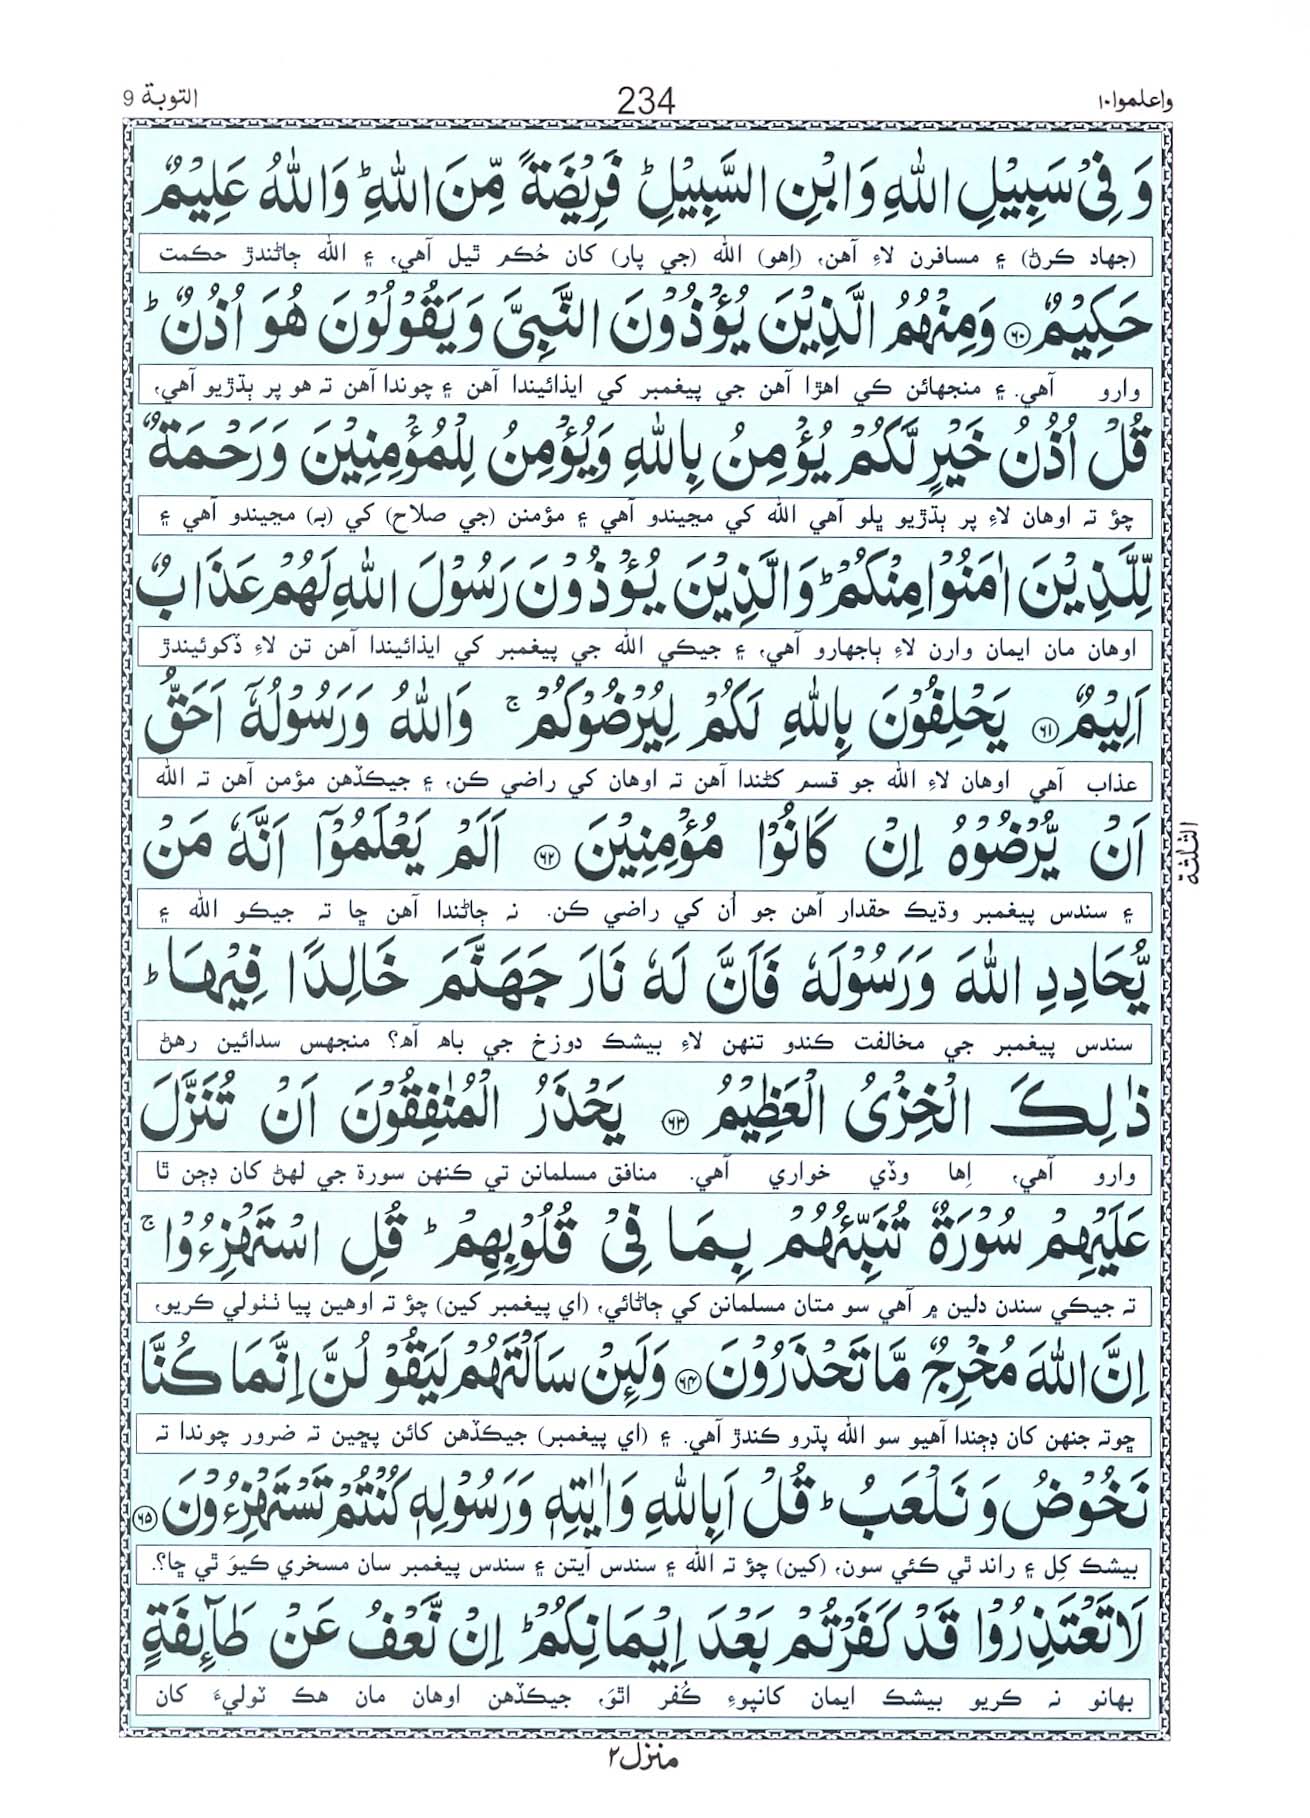 واعلموا ١٠
234
التوبة 9
وَ فِیْ سَبِیْلِ اللّٰهِ وَ ابْنِ السَّبِیْلِ ؕ فَرِیْضَةً مِّنَ اللّٰهِ ؕ وَ اللّٰهُ عَلِیْمٌ
(جهاد ڪرڻ) ۽ مسافرن لاءِ آهن، (اِهو) الله (جي پار) کان حُڪم ٿيل آهي، ۽ الله ڄاڻندڙ حڪمت
حَكِیْمٌ ﴿۶۰﴾ وَ مِنْهُمُ الَّذِیْنَ یُؤْذُوْنَ النَّبِیَّ وَ یَقُوْلُوْنَ هُوَ اُذُنٌ ؕ
وارو آهي. ۽ منجهائن ڪي اهڙا آهن جي پيغمبر کي ايذائيندا آهن ۽ چوندا آهن ته هو پر ٻڌڙيو آهي،
قُلْ اُذُنُ خَیْرٍ لَّكُمْ یُؤْمِنُ بِاللّٰهِ وَ یُؤْمِنُ لِلْمُؤْمِنِیْنَ وَ رَحْمَةٌ
چؤ ته اوهان لاءِ پر ٻڌڙيو ڀلو آهي الله کي مڃيندو آهي ۽ مؤمنن (جي صلاح) کي (به) مڃيندو آهي ۽
لِّلَّذِیْنَ اٰمَنُوْا مِنْكُمْ ؕ وَ الَّذِیْنَ یُؤْذُوْنَ رَسُوْلَ اللّٰهِ لَهُمْ عَذَابٌ
اوهان مان ايمان وارن لاءِ ٻاجهارو آهي، ۽ جيڪي الله جي پيغمبر کي ايذائيندا آهن تن لاءِ ڏکوئيندڙ
اَلِیْمٌ ﴿۶۱﴾ یَحْلِفُوْنَ بِاللّٰهِ لَكُمْ لِیُرْضُوْكُمْ ۚ وَ اللّٰهُ وَ رَسُوْلُهٗۤ اَحَقُّ
عذاب آهي اوهان لاءِ الله جو قسم کڻندا آهن ته اوهان کي راضي ڪن، ۽ جيڪڏهن مؤمن آهن ته الله
اَنْ یُّرْضُوْهُ اِنْ كَانُوْا مُؤْمِنِیْنَ ﴿۶۲﴾ اَلَمْ یَعْلَمُوْۤا اَنَّهٗ مَنْ
۽ سندس پيغمبر وڌيڪ حقدار آهن جو اُن کي راضي ڪن. نه ڄاڻندا آهن ڇا ته جيڪو الله ۽
الثلثة
یُّحَادِدِ اللّٰهَ وَ رَسُوْلَهٗ فَاَنَّ لَهٗ نَارَ جَهَنَّمَ خَالِدًا فِیْهَا ؕ
سندس پيغمبر جي مخالفت ڪندو تنهن لاءِ بيشڪ دوزخ جي باهه آهه؟ منجهس سدائين رهڻ
ذٰلِكَ الْخِزْیُ الْعَظِیْمُ ﴿۶۳﴾ یَحْذَرُ الْمُنٰفِقُوْنَ اَنْ تُنَزَّلَ
وارو آهي، اِها وڏي خواري آهي. منافق مسلمانن تي ڪنهن سورة جي لهڻ کان ڊڄن ٿا
عَلَیْهِمْ سُوْرَةٌ تُنَبِّئُهُمْ بِمَا فِیْ قُلُوْبِهِمْ ؕ قُلِ اسْتَهْزِءُوْا ۚ
ته جيڪي سندن دلين ۾ آهي سو متان مسلمانن کي ڄاڻائي، (اي پيغمبر کين) چؤ ته اوهين پيا ٺٺولي ڪريو،
اِنَّ اللّٰهَ مُخْرِجٌ مَّا تَحْذَرُوْنَ ﴿۶۴﴾ وَ لَئِنْ سَاَلْتَهُمْ لَیَقُوْلُنَّ اِنَّمَا كُنَّا
ڇوته جنهن کان ڊڄندا آهيو سو الله پڌرو ڪندڙ آهي. ۽ (اي پيغمبر) جيڪڏهن کائن پڇين ته ضرور چوندا ته
نَخُوْضُ وَ نَلْعَبُ ؕ قُلْ اَبِاللّٰهِ وَ اٰیٰتِهٖ وَ رَسُوْلِهٖ كُنْتُمْ تَسْتَهْزِءُوْنَ ﴿۶۵﴾
بيشڪ کِل ۽ راند ٿي ڪئي سون، (کين) چؤ ته الله ۽ سندس آيتن ۽ سندس پيغمبر سان مسخري ڪيوَ ٿي ڇا؟.
لَا تَعْتَذِرُوْا قَدْ كَفَرْتُمْ بَعْدَ اِیْمَانِكُمْ ؕ اِنْ نَّعْفُ عَنْ طَآئِفَةٍ
بهانو نه ڪريو بيشڪ ايمان کانپوءِ ڪُفر اٿوَ، جيڪڏهن اوهان مان هڪ ٽوليءَ کان
منزل ٢